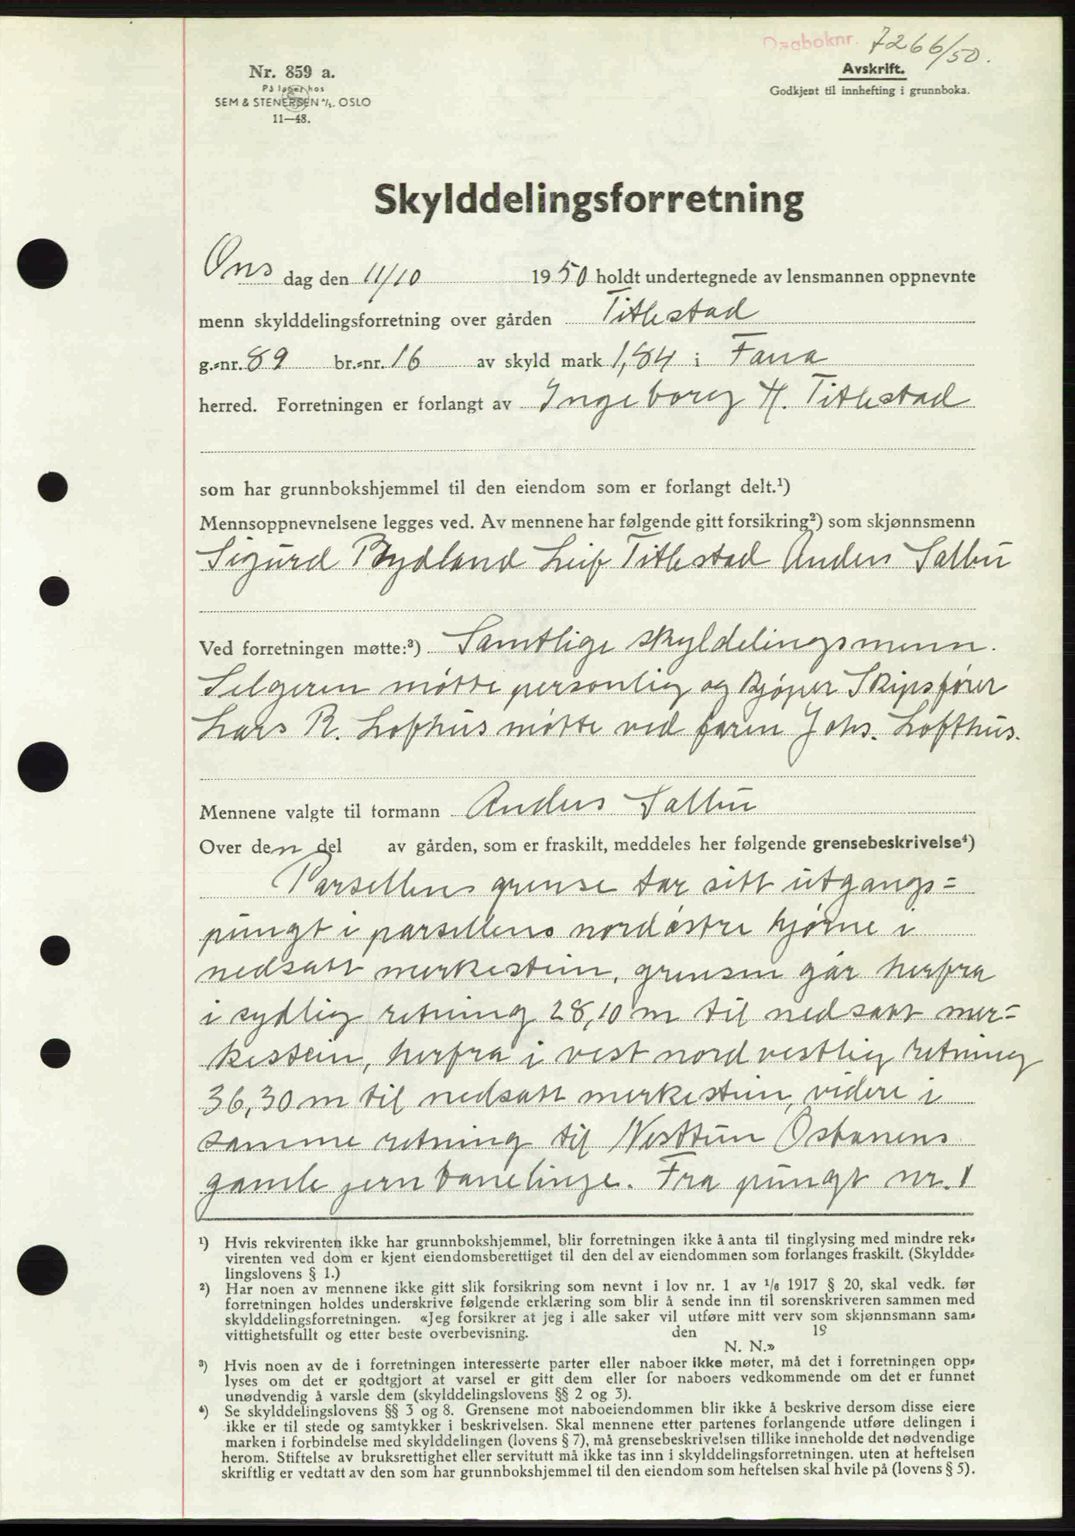 Dagboknr. 7266/50.
Nr. 859 a.
På lager hos
SEM & STENERSEN A/S. OSLO
11—48.
Avskrift.
Godkjent til innhefting i grunnboka.
Skylddelingsforretning
Ons dag den 11/10 1950 holdt undertegnede av lensmannen oppnevnte
menn skylddelingsforretning over gården Titlestad
g.-nr. 89 br.-nr. 16 av skyld mark 1,84 i Fana
herred. Forretningen er forlangt av Ingeborg H. Titlestad
som har grunnbokshjemmel til den eiendom som er forlangt delt.¹)
Mennsoppnevnelsene legges ved. Av mennene har følgende gitt forsikring²) som skjønnsmenn
Sigurd Rydland Leif Titlestad Anders Sælbu
Ved forretningen møtte:³) Samtlige skyldelingsmenn.
Selgeren møtte personlig og kjøper Skipsfører
Lars R. Lofthus møtte ved faren Johs. Lofthus.
Mennene valgte til formann Anders Sælbu
Over den del av gården, som er fraskilt, meddeles her følgende grensebeskrivelse⁴)
Parsellens grense tar sitt utgangs=
pungt i parsellens nordøstre hjørne i
nedsatt merkestein, grensen går herfra
i sydlig retning 28,10 m til nedsatt mer=
kestein, herfra i vest nordvestlig retning
36,30 m til nedsatt merkestein, videre i
samme retning til Nesttun Osbanens
gamle jernbanelinje. Fra pungt nr. 1
¹) Hvis rekvirenten ikke har grunnbokshjemmel, blir forretningen ikke å anta til tinglysing med mindre rek-
virenten ved dom er kjent eiendomsberettiget til den del av eiendommen som forlanges fraskilt. (Skyldde-
lingslovens § 1.)
²) Har noen av mennene ikke gitt slik forsikring som nevnt i lov nr. 1 av 1/6 1917 § 20, skal vedk. før
forretningen holdes underskrive følgende erklæring som blir å sende inn til sorenskriveren sammen med
skylddelingsforretningen. «Jeg forsikrer at jeg i alle saker vil utføre mitt verv som skjønnsmann sam-
vittighetsfullt og etter beste overbevisning. den 19
N. N.»
³) Hvis noen av de i forretningen interesserte parter eller naboer ikke møter, må det i forretningen opp-
lyses om det er godtgjort at varsel er gitt dem eller for naboers vedkommende om det er funnet
unødvendig å varsle dem (skylddelingslovens §§ 2 og 3).
⁴) Se skylddelingslovens §§ 3 og 8. Grensene mot naboeiendommen blir ikke å beskrive dersom disse eiere
ikke er til stede og samtykker i beskrivelsen. Skal mennene etter partenes forlangende utføre delingen i
marken i forbindelse med skylddelingen (lovens § 7), må grensebeskrivelsen tillike inneholde det nødvendige
herom. Stiftelse av bruksrettighet eller servitutt må ikke tas inn i skylddelingsforretningen. uten at heftelsen
skriftlig er vedtatt av den som har grunnbokshjemmel til den eiendom som heftelsen skal hvile på (lovens § 5).